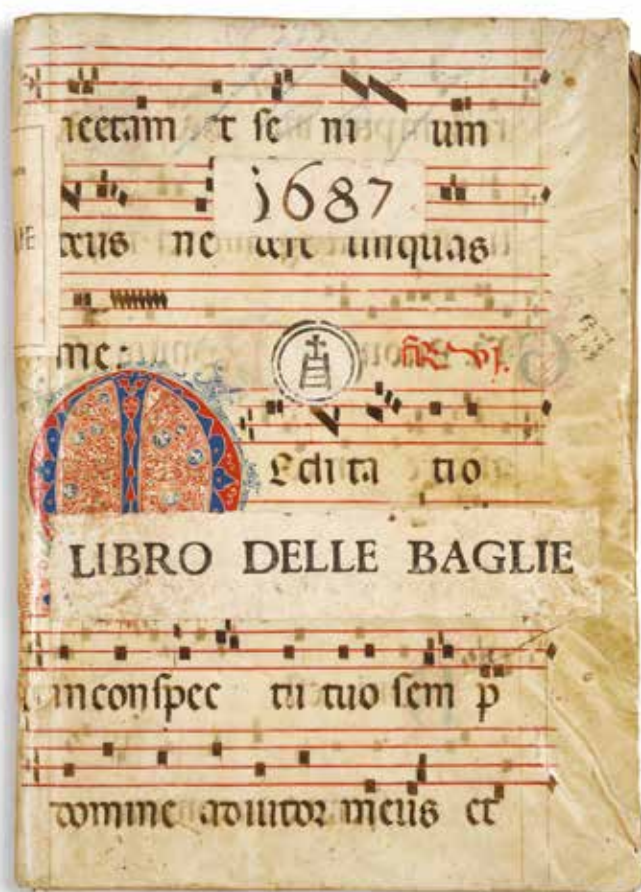 nectam et se ni um
1687
me:
Edita tio
LIBRO DELLE BAGLIE
in conspec tu tuo sem p
domine adiutor meus et